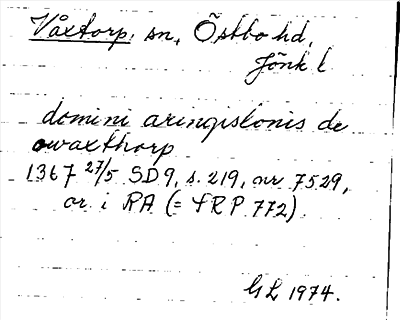 Våxtorp, sn, Östbo hd,
Jönk l
domini aringislonis de
owaxthorp
1367 27/5 SD9, s. 219, nr 7529,
or. i RA (= FRP 772)
GL 1974.